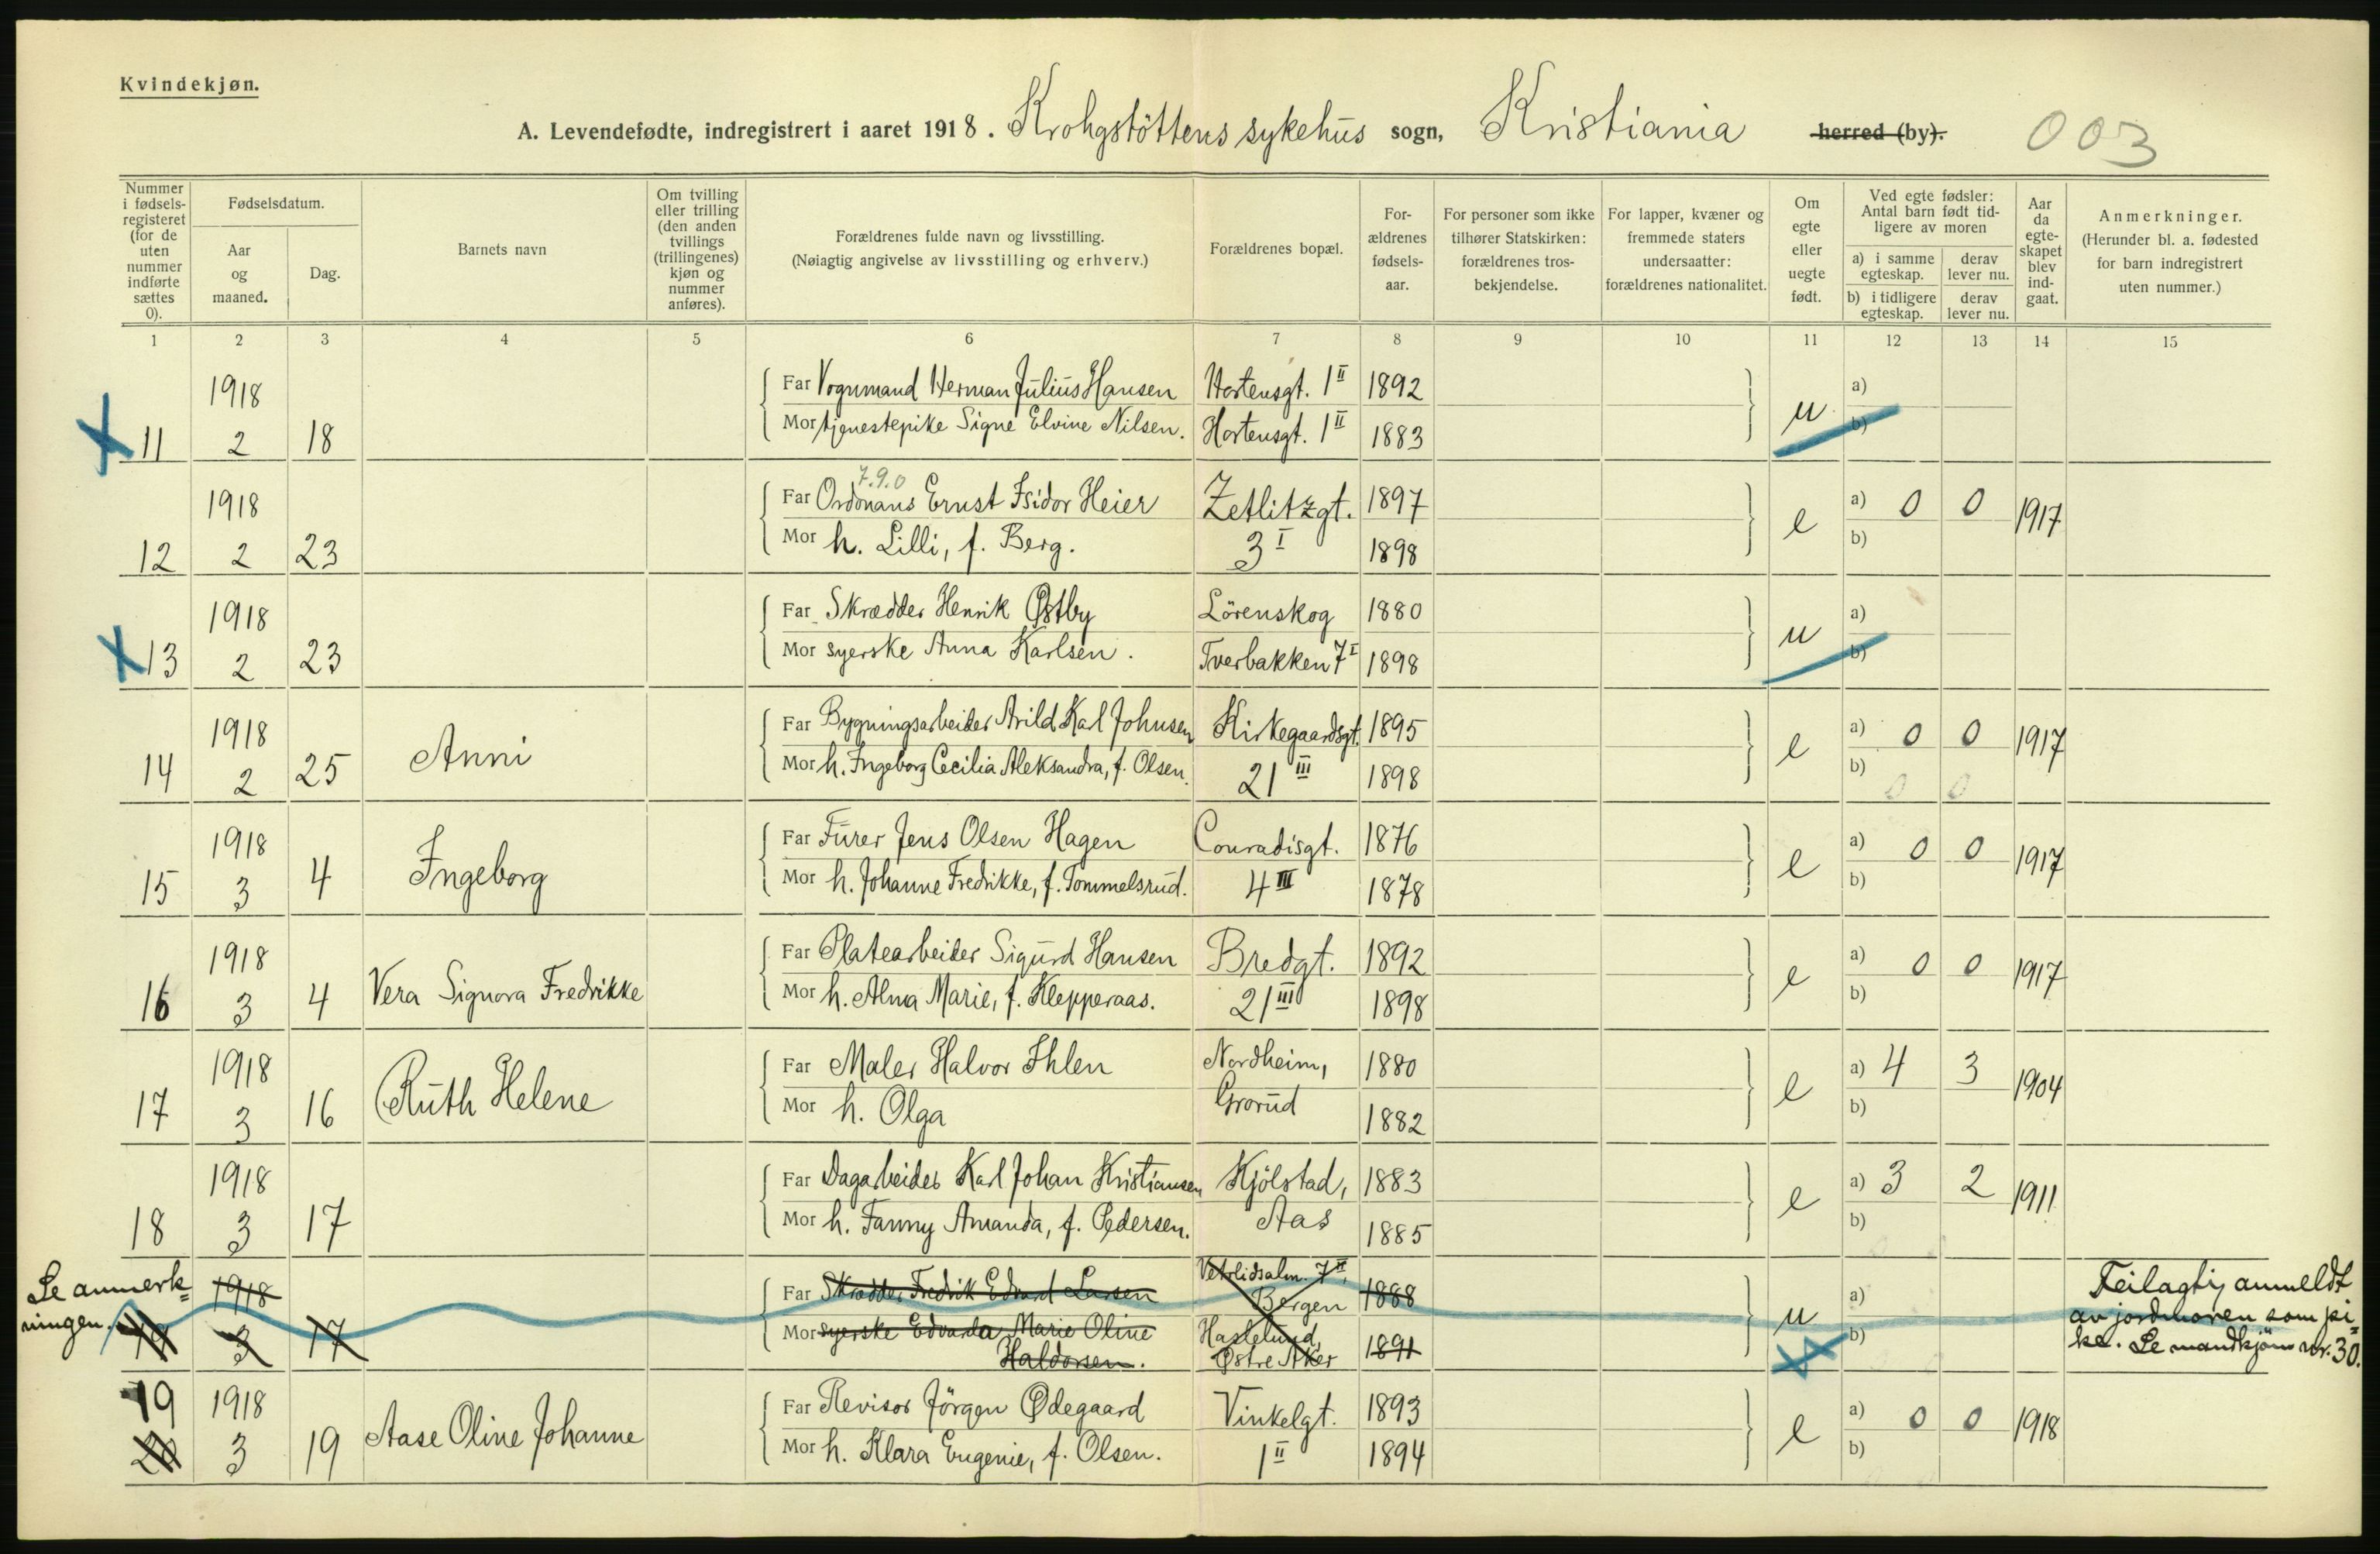 Kvindekjøn.
A. Levendefødte, indregistrert i aaret 1918. Krohgstöttens sykehus sogn, Kristiania herred (by).
003
Nummer i fødsels-registeret (for de uten nummer indførte sættes 0).
Fødselsdatum.
Aar og maaned.
Dag.
Barnets navn
Om tvilling eller trilling (den anden tvillings (trillingenes) kjøn og nummer anføres).
Forældrenes fulde navn og livsstilling.
(Nøiagtig angivelse av livsstilling og erhverv.)
Forældrenes bopæl.
For-ældrenes fødsels-aar.
For personer som ikke tilhører Statskirken: forældrenes tros-bekjendelse.
For lapper, kvæner og fremmede staters undersaatter: forældrenes nationalitet.
Om egte eller uegte født.
Ved egte fødsler: Antal barn født tid-ligere av moren
a) i samme egteskap.
derav lever nu.
b) i tidligere egteskap.
derav lever nu.
Aar da egte-skapet blev ind-gaat.
Anmerkninger.
(Herunder bl. a. fødested for barn indregistrert uten nummer.)
1 2 3 4 5 6 7 8 9 10 11 12 13 14 15
1918 Far Vognmand Herman Julius Hansen Hortensgt. 1 II 1892 u a)
11 2 18 Mor tjenestepike Signe Elvine Nilsen. Hortensgt. 1 II 1883 b)
7.9.0
1918 Far Ordonans Ernst Isidor Heier Zetlitzgt. 1897 e a) 0 0 1917
12 2 23 Mor h. Lilli, f. Berg. 3 I 1898 b)
1918 Far Skrædder Henrik Østby Lörenskog 1880 u a)
13 2 23 Mor syerske Anna Karlsen. Tverbakken 7 I 1898 b)
1918 Far Bygningsarbeider Arild Karl Johnsen Kirkegaardsgt. 1895 e a) 0 0 1917
14 2 25 Anni Mor h. Ingeborg Cecilia Aleksandra, f. Olsen. 21 III 1898 b) 0 0
1918 Far Fürer Jens Olsen Hagen Conradisgt. 1876 e a) 0 0 1917
15 3 4 Ingeborg Mor h. Johanne Fredrikke, f. Tommelsrud. 4 III 1878 b)
1918 Far Platearbeider Sigurd Hansen Bredgt. 1892 e a) 0 0 1917
16 3 4 Vera Signora Fredrikke Mor h. Alma Marie, f. Klepperaas. 21 III 1898 b)
1918 Far Maler Halvor Ihlen Nordheim, 1880 e a) 4 3 1904
17 3 16 Ruth Helene Mor h. Olga Grorud 1882 b)
1918 Far Dagarbeider Karl Johan Kristiansen Kjölstad, 1883 e a) 3 2 1911
18 3 17 Mor h. Fanny Amanda, f. Pedersen. Aas 1885 b)
Se anmerk=
ningen.
1918 Far Skrædder Fredrik Edvard Larsen Vetrlidsalm. 7 II, Bergen 1888 u a)
19 3 17 Mor syerske Edvarda Marie Oline Haldorsen. Haslelund, Østre Aker 1891 b)
Feilagtig anmeldt
av jordmoren som pi=
ke. Se mandkjön nr. 30.
19 1918 Far Revisor Jörgen Ødegaard Vinkelgt. 1893 e a) 0 0 1918
20 3 19 Aase Oline Johanne Mor h. Klara Eugenie, f. Olsen. 1 II 1894 b)